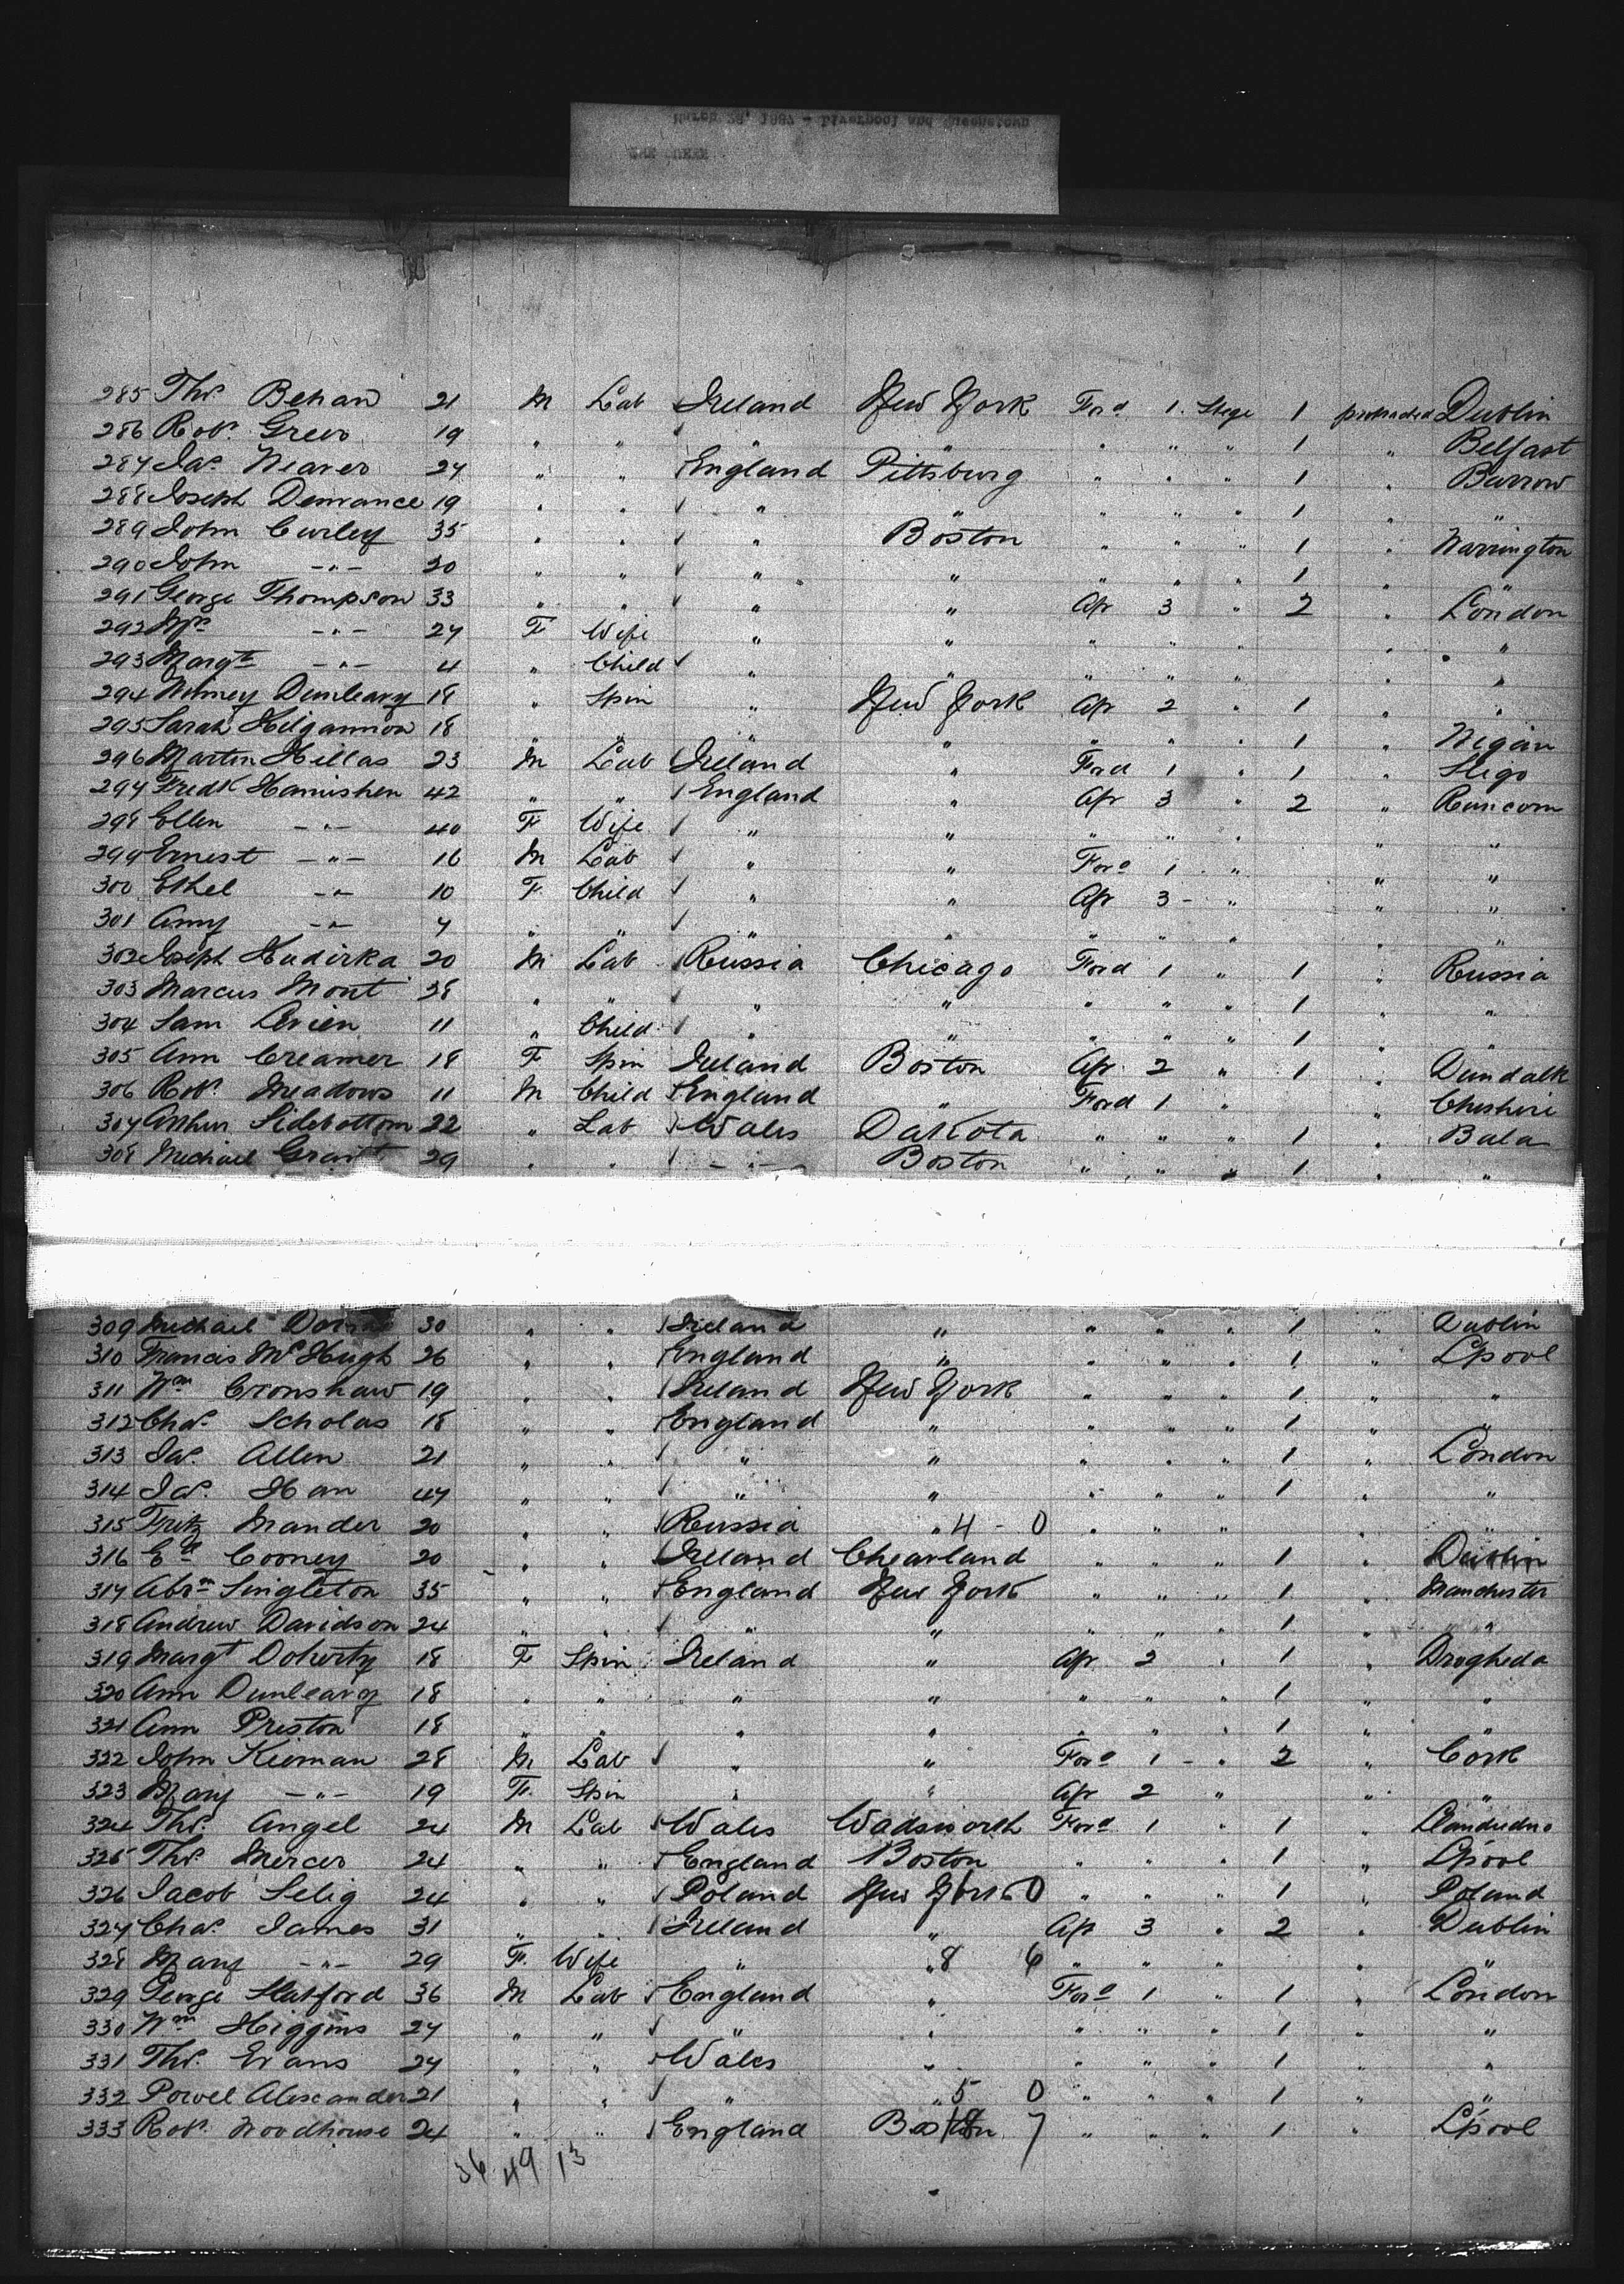 March 28, 1887 - Liverpool and Queenstown
285 Thos. Behan 21 M Lab Ireland New York Ford 1 Stege 1 protracted Dublin
286 Robt. 19 " " ✓ " " " " " 1 " Belfast
287 Jas. Weaver 27 " " England Pittsburg " " " 1 " Barrow
288 Joseph 19 " " ✓ " " " " " 1 " "
289 John Curley 35 " " ✓ " Boston " " " 1 " Warrington
290 John -"- 20 " " ✓ " " " " " 1 " "
291 George Thompson 33 " " ✓ " " Ap 3 " 2 " London
292 Mrs -"- 27 F Wife " " " " " " "
293 Margt -"- 4 " Child ✓ " " " " " " "
294 Winney Dunleavy 18 " Spin " New York Ap 2 " 1 " "
295 Sarah Kilgannon 18 " " " " " " " 1 " Wigan
296 Martin Hillas 23 M Lab Ireland " Ford 1 " 1 " Sligo
297 Fredk 42 " " ✓ England " Ap 3 " 2 " Runcorn
298 Ellen -"- 40 F Wife ✓ " " " " " " "
299 Ernest -"- 16 M Lab ✓ " " Ford 1 " " "
300 Ethel -"- 10 F Child ✓ " " Ap 3 - " " "
301 Amy -"- 7 " " ✓ " " " " " " "
302 Joseph Kudirka 20 M Lab ✓ Russia Chicago Ford 1 " 1 " Russia
303 Marcus Mont 38 " " ✓ " " " " " 1 " "
304 Sam Levien 11 " Child ✓ " " " " " 1 " "
305 Ann Creamer 18 F Spin Ireland Boston Ap 2 " 1 " Dundalk
306 Robt. Meadows 11 M Child ✓ England " Ford 1 " " Cheshire
307 Arthur Sidebottom 22 " Lab ✓ Wales Dakota " " " 1 " Bala
308 Michael Grant 29 " " ✓ -"- Boston " " " 1 " "
309 Michael 30 " " ✓ Ireland " " " " 1 " Dublin
310 Francis McHugh 26 " " ✓ England " " " " 1 " L'pool
311 Wm Cronshaw 19 " " ✓ Ireland New York " " " 1 " "
312 Chas. Scholas 18 " " ✓ England " " " " 1 " "
313 Jas. Allen 21 " " ✓ " " " " " 1 " London
314 Jas. Han 47 " " ✓ " " " " " 1 " "
315 Fritz Mander 20 " " ✓ Russia " 4 - 0 " " " " "
316 Ed Cooney 20 " " ✓ Ireland Clearland " " " 1 " Dublin
317 Abrm Singleton 35 " " ✓ England New York " " " 1 " Manchester
318 Andrew Davidson 24 " " ✓ " " " " " 1 " "
319 Margt Doherty 18 F Spin Ireland " Ap 2 " 1 " Drogheda
320 Ann Dunleavy 18 " " " " " " " 1 " "
321 Ann Preston 18 " " " " " " " 1 " "
322 John Kiernan 28 M Lab ✓ " " Ford 1 - " 2 " Cork
323 Mary -"- 19 F Spin " " Ap 2 " " "
324 Thos. Angel 24 M Lab ✓ Wales Wadsworth Ford 1 " 1 " Llandudno
325 Thos. Mercer 24 " " ✓ England Boston " " " 1 " L'pool
326 Jacob Selig 24 " " ✓ Poland New York 0 " " " 1 " Poland
327 Chas. James 31 " " ✓ Ireland " Ap 3 " 2 " Dublin
328 Mary -"- 29 F Wife " " 8 6 " " " " "
329 George Slatford 36 M Lab ✓ England " Ford 1 " 1 " London
330 Wm Higgins 27 " " ✓ " " " " " 1 " "
331 Thos. Evans 27 " " ✓ Wales " " " " 1 " "
332 Powel Alexander 21 " " ✓ " " 5 0 " " " 1 " "
333 Robt. Woodhouse 24 " " ✓ England Boston 7 " " " 1 " L'pool
36 49 13